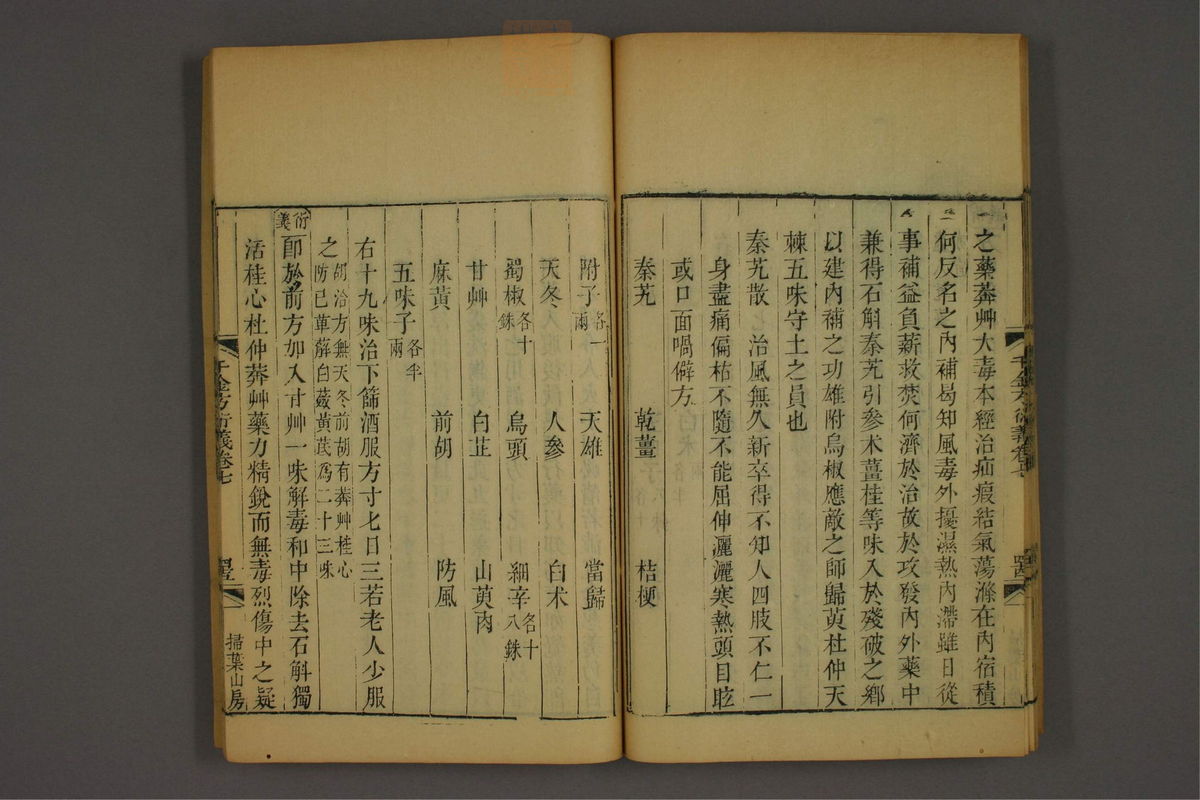 之藥莽艸大毒本經治疝瘕結氣蕩滌在內宿積
何反名之內補曷知風毒外擾濕熱內滯雖日從
事補益負薪救焚何濟於治故於攻發內外藥中
兼得石斛秦艽引參朮薑桂等味入於殘破之鄉
以建內補之功雄附烏椒應敵之師歸萸杜仲天
棘五味守土之員也
秦艽散七 治風無久新卒得不知人四肢不仁一
身盡痛偏枯不隨不能屈伸灑灑寒熱頭目眩
或口面喎僻方
秦艽 乾薑 桔梗
附子各一兩 天雄 當歸
天冬 人參 白朮
蜀椒各十銖 烏頭 細辛各十八銖
甘艸 白芷 山萸肉
麻黃 前胡 防風
五味子各半兩
右十九味治下篩酒服方寸七日三若老人少服
之胡洽方無天冬前胡有莽艸桂心
防已萆薢白蘞黃茋為二十三味
衍義 即於前方加入甘艸一味解毒和中除去石斛獨
活桂心杜仲莽艸藥力精銳而無毒烈傷中之疑
千金方衍義卷七
掃葉山房